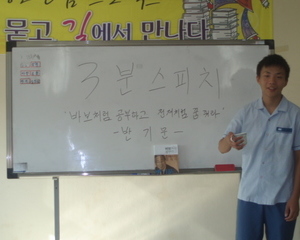 묻고 길에서 만나다
3분스피치
'바보처럼 공부하고 천재처럼 꿈꿔라'
-반기문-